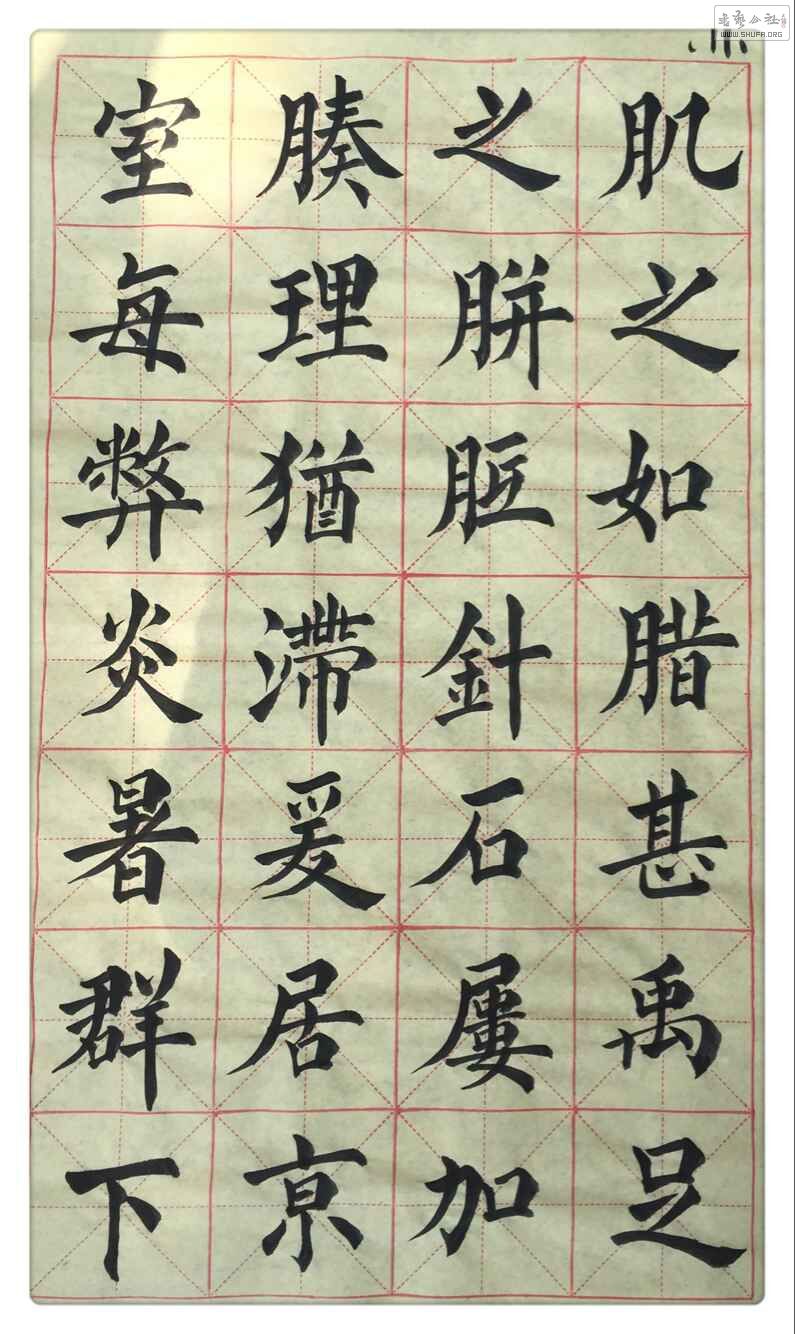 肌之如腊甚禹足
之胼胝針石屢加
腠理猶滯爰居亰
室每弊炎暑群下
書藝公社
WWW.SHUFA.ORG